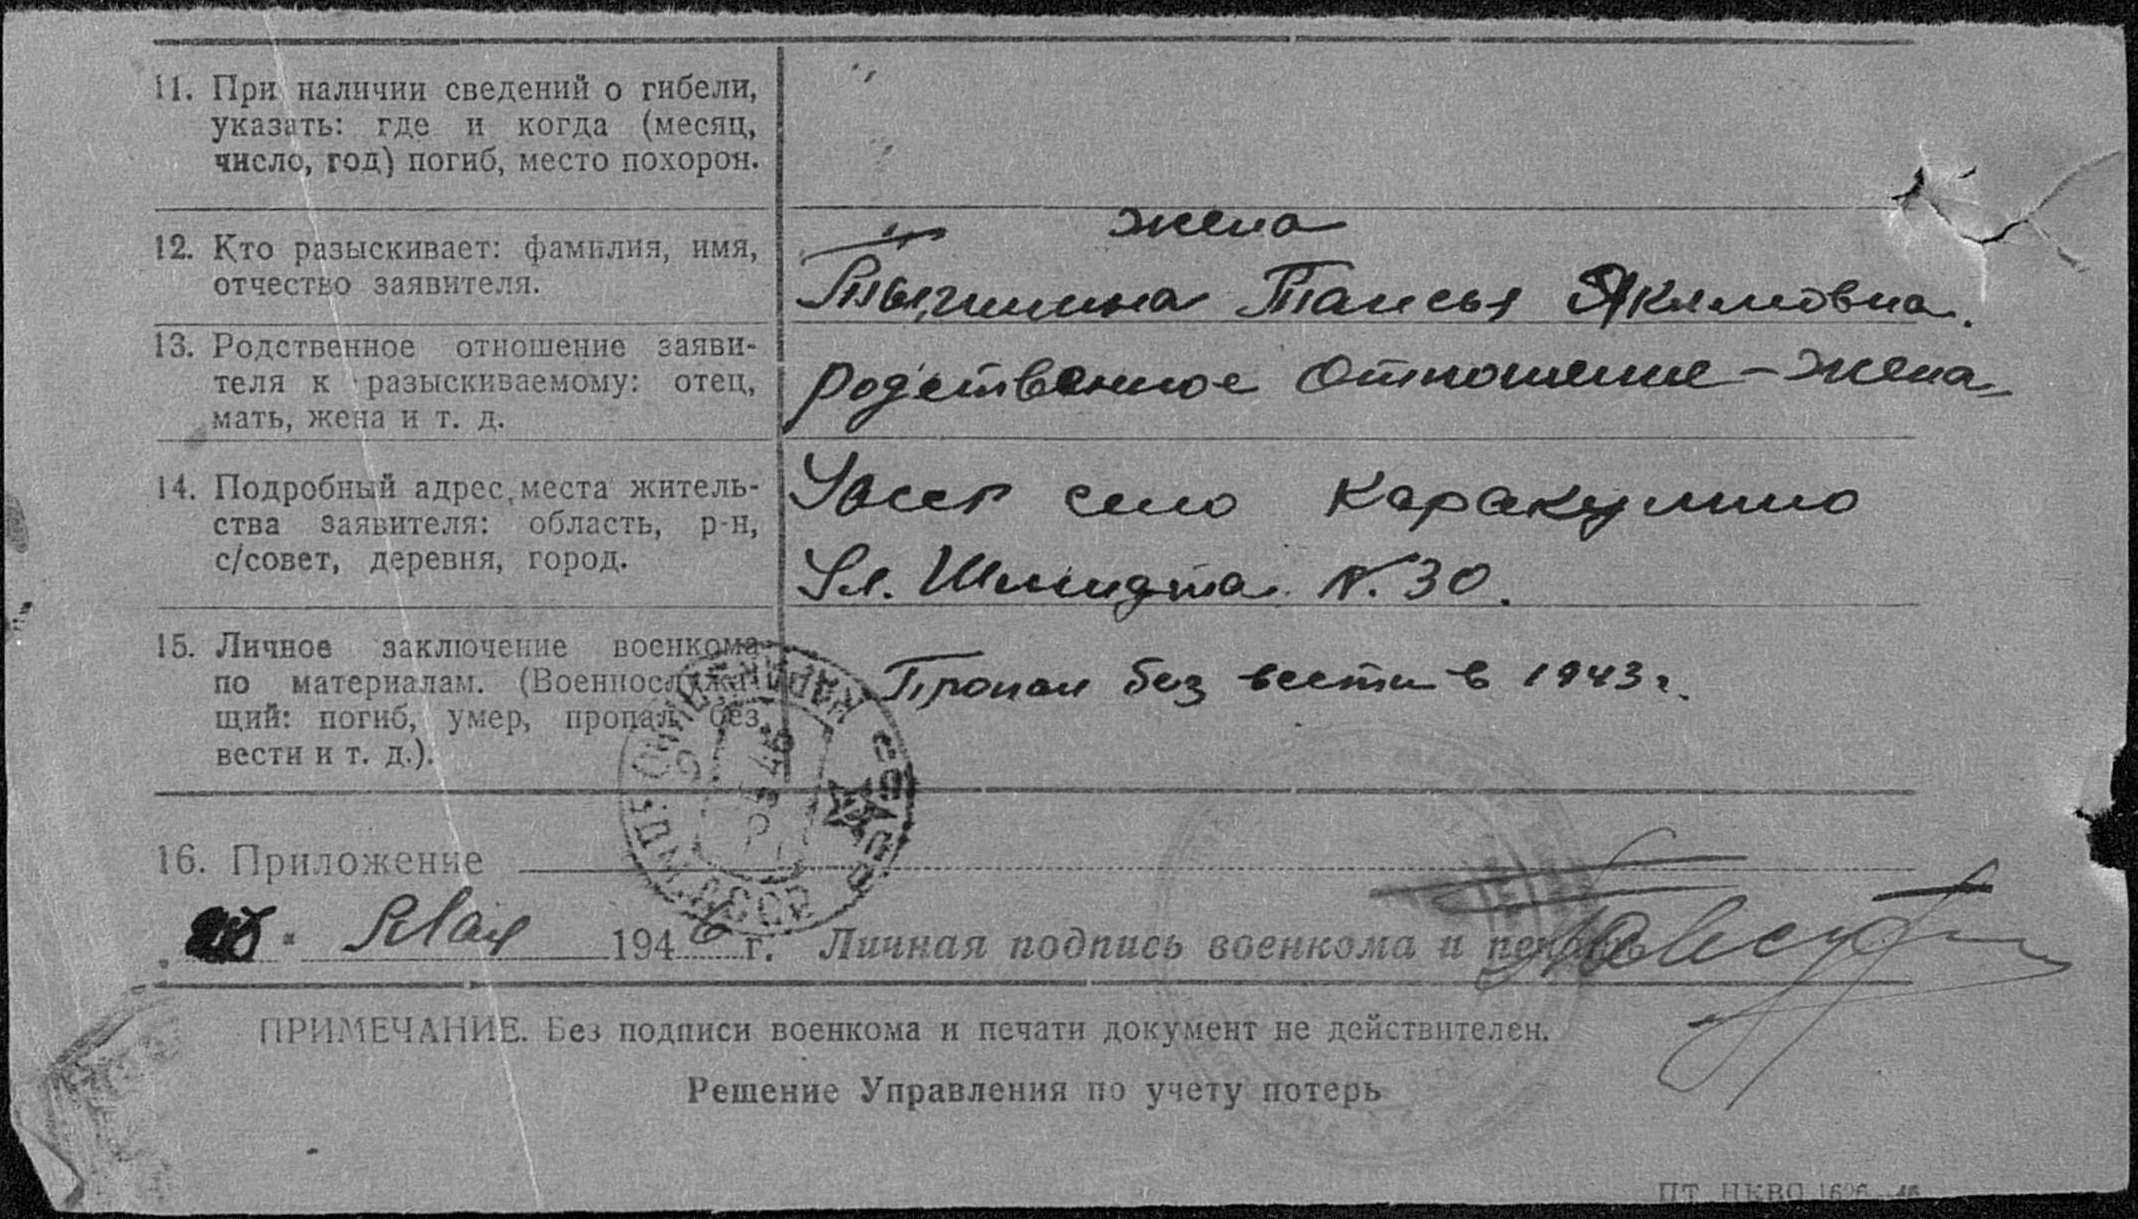 11. При наличии сведений о гибели,
указать: где и когда (месяц,
число, год) погиб, место похорон.
жена
12. Кто разыскивает: фамилия, имя,
отчество заявителя.
Тычинина Таисья Якимовна.
13. Родственное отношение заяви-
теля к разыскиваемому: отец,
мать, жена и т. д.
родственное отношение - жена
14. Подробный адрес места житель-
ства заявителя: область, р-н,
с/совет, деревня, город.
УАССР село Каракулино
Ул. Шмидта N. 30.
15. Личное заключение военкома
по материалам. (Военнослужа-
щий: погиб, умер, пропал без
вести и т. д.).
Пропал без вести в 1943 г.
16. Приложение
Мая 1946 г. Личная подпись военкома и печать
ПРИМЕЧАНИЕ. Без подписи военкома и печати документ не действителен.
Решение Управления по учету потерь